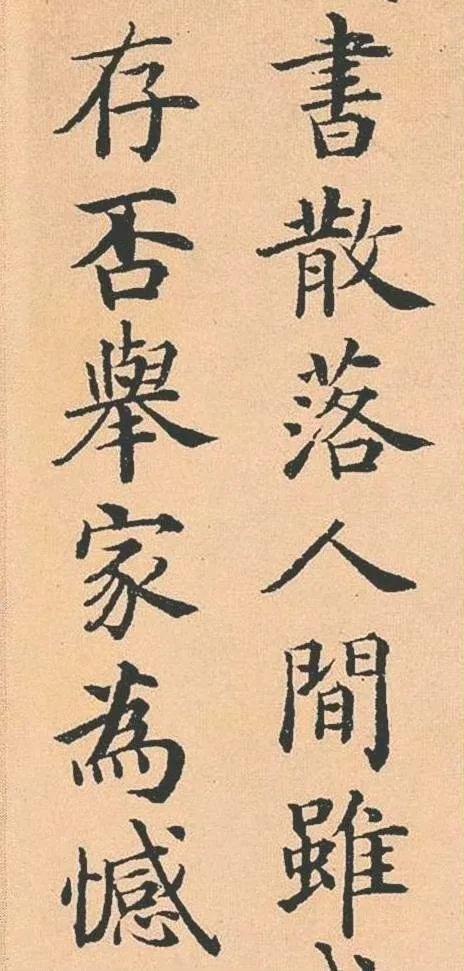 書散落人間雖
存否舉家為憾